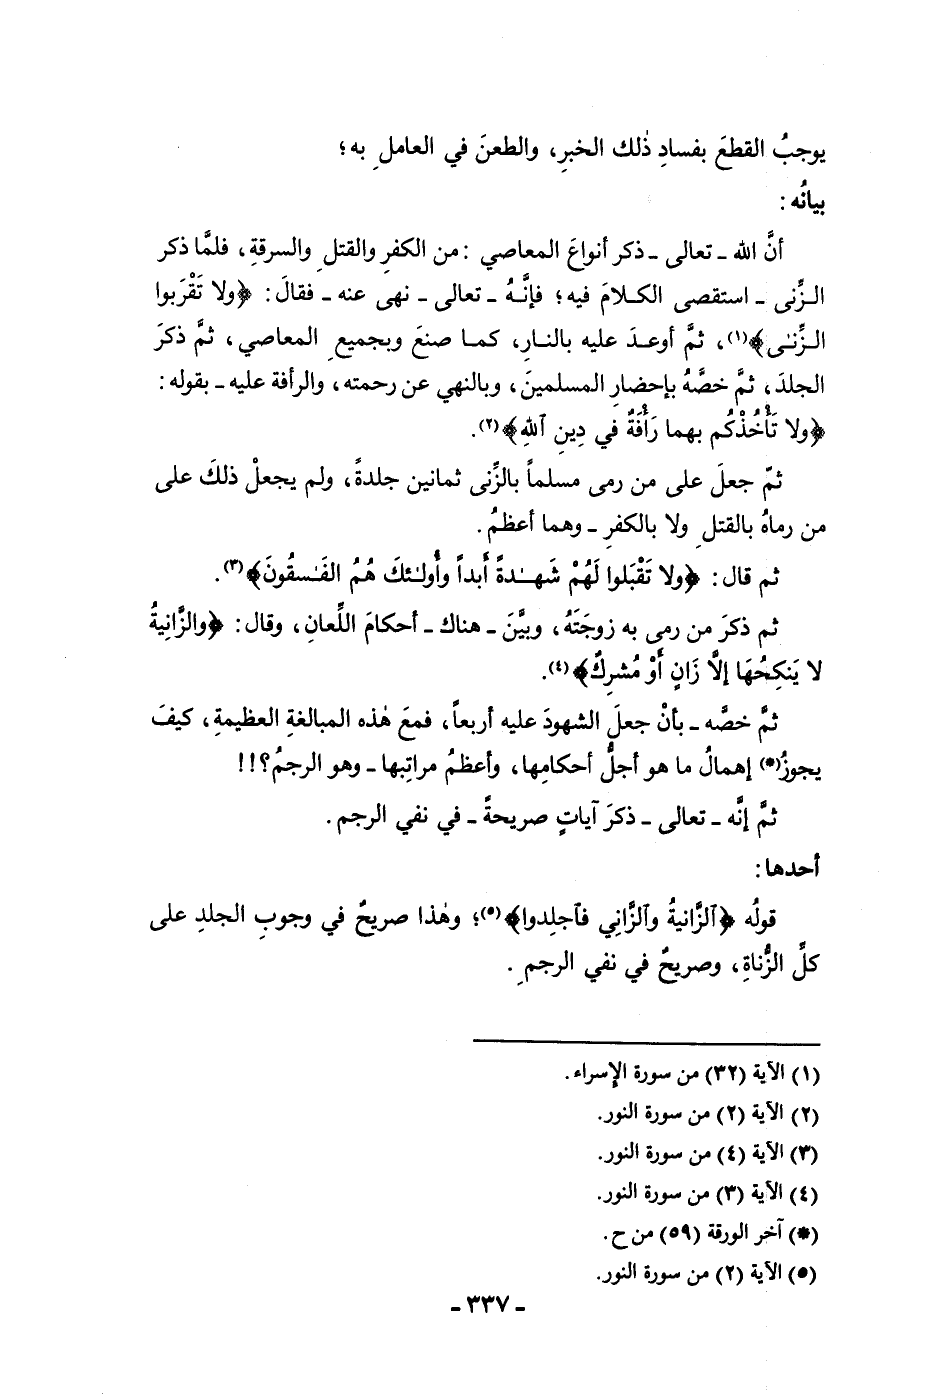 يوجبُ القطعَ بفسادِ ذٰلك الخبرِ، والطعنَ في العاملِ به؛
بيانُه :
أنَّ الله ـ تعالى ـ ذكر أنواعَ المعاصي : من الكفرِ والقتلِ والسرقةِ، فلمَّا ذكر
الزِّنى ـ استقصى الكلامَ فيه؛ فإنَّهُ ـ تعالى ـ نهى عنه ـ فقالَ: ﴿ولا تَقْرَبوا
الزِّنٰى﴾(١)، ثمَّ أوعدَ عليه بالنارِ، كما صنعَ وبجميعِ المعاصي، ثمَّ ذكرَ
الجلدَ، ثمَّ خصَّهُ بإحضارِ المسلمينَ، وبالنهي عن رحمته، والرأفة عليه ـ بقوله:
﴿ولا تَأْخُذْكُم بهما رَأْفَةٌ في دِينِ ٱللهِ﴾(٢).
ثمّ جعلَ على من رمى مسلماً بالزِّنى ثمانين جلدةً، ولم يجعلْ ذلكَ على
من رماهُ بالقتلِ ولا بالكفرِ ـ وهما أعظمُ.
ثم قال: ﴿ولا تَقْبَلوا لَهُمْ شَهـٰدةً أَبداً وأُولـٰئكَ هُمُ الفَـٰسقُونَ﴾(٣).
ثم ذكرَ من رمى به زوجَتَهُ، وبيَّنَ ـ هناك ـ أحكامَ اللِّعانِ، وقال: ﴿والزَّانِيةُ
لا يَنكِحُهَا إلَّا زَانٍ أَوْ مُشرِكٌ﴾(٤).
ثمَّ خصَّه ـ بأنْ جعلَ الشهودَ عليه أربعاً، فمعَ هٰذه المبالغةِ العظيمةِ، كيفَ
يجوزُ(*) إهمالُ ما هو أجلُّ أحكامِها، وأعظمُ مراتِبها ـ وهو الرجمُ؟!!
ثمَّ إنَّه ـ تعالى ـ ذكرَ آياتٍ صريحةً ـ في نفي الرجم.
أحدها:
قولُه ﴿ٱلزَّانيةُ وٱلزَّاني فٱجلِدوا﴾(٥)؛ وهٰذا صريحٌ في وجوبِ الجلدِ على
كلِّ الزُّناةِ، وصريحٌ في نفي الرجمِ.
(١) الآية (٣٢) من سورة الإسراء.
(٢) الآية (٢) من سورة النور.
(٣) الآية (٤) من سورة النور.
(٤) الآية (٣) من سورة النور.
(*) آخر الورقة (٥٩) من ح.
(٥) الآية (٢) من سورة النور.
ـ ٣٣٧ ـ